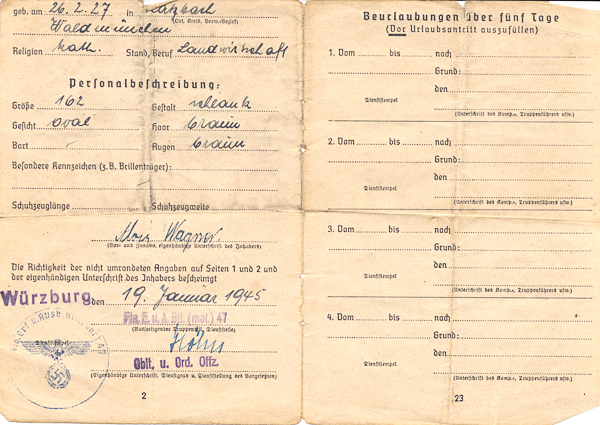 geb. am 26.2.27 in
Waldmünchen (Ort, Kreis, Verw.-Bezirk)
Religion kath. Stand, Beruf Landwirtschaft
Personalbeschreibung:
Größe 162 Gestalt schlank
Gesicht oval Haar braun
Bart - Augen braun
Besondere Kennzeichen (z.B. Brillenträger):
Schuhzeuglänge Schuhzeugweite
Wagner
(Vor- und Zuname, eigenhändige Unterschrift des Inhabers)
Die Richtigkeit der nicht umrandeten Angaben auf Seiten 1 und 2 und
der eigenhändigen Unterschrift des Inhabers bescheinigt
Würzburg den 19. Januar 1945
Fla. E. u. A. Btl. (mot.) 47
(Ausfertigender Truppenteil, Dienststelle)
Dienststempel
Oblt. u. Ord. Offz.
(Eigenhändige Unterschrift, Dienstgrad u. Dienststellung des Vorgesetzten)
2
Beurlaubungen über fünf Tage
(Vor Urlaubsantritt auszufüllen)
1. Vom bis nach
Grund:
den
Dienststempel
(Unterschrift des Komp.-, Truppenführers usw.)
2. Vom bis nach
Grund:
den
Dienststempel
(Unterschrift des Komp.-, Truppenführers usw.)
3. Vom bis nach
Grund:
den
Dienststempel
(Unterschrift des Komp.-, Truppenführers usw.)
4. Vom bis nach
Grund:
den
Dienststempel
(Unterschrift des Komp.-, Truppenführers usw.)
23